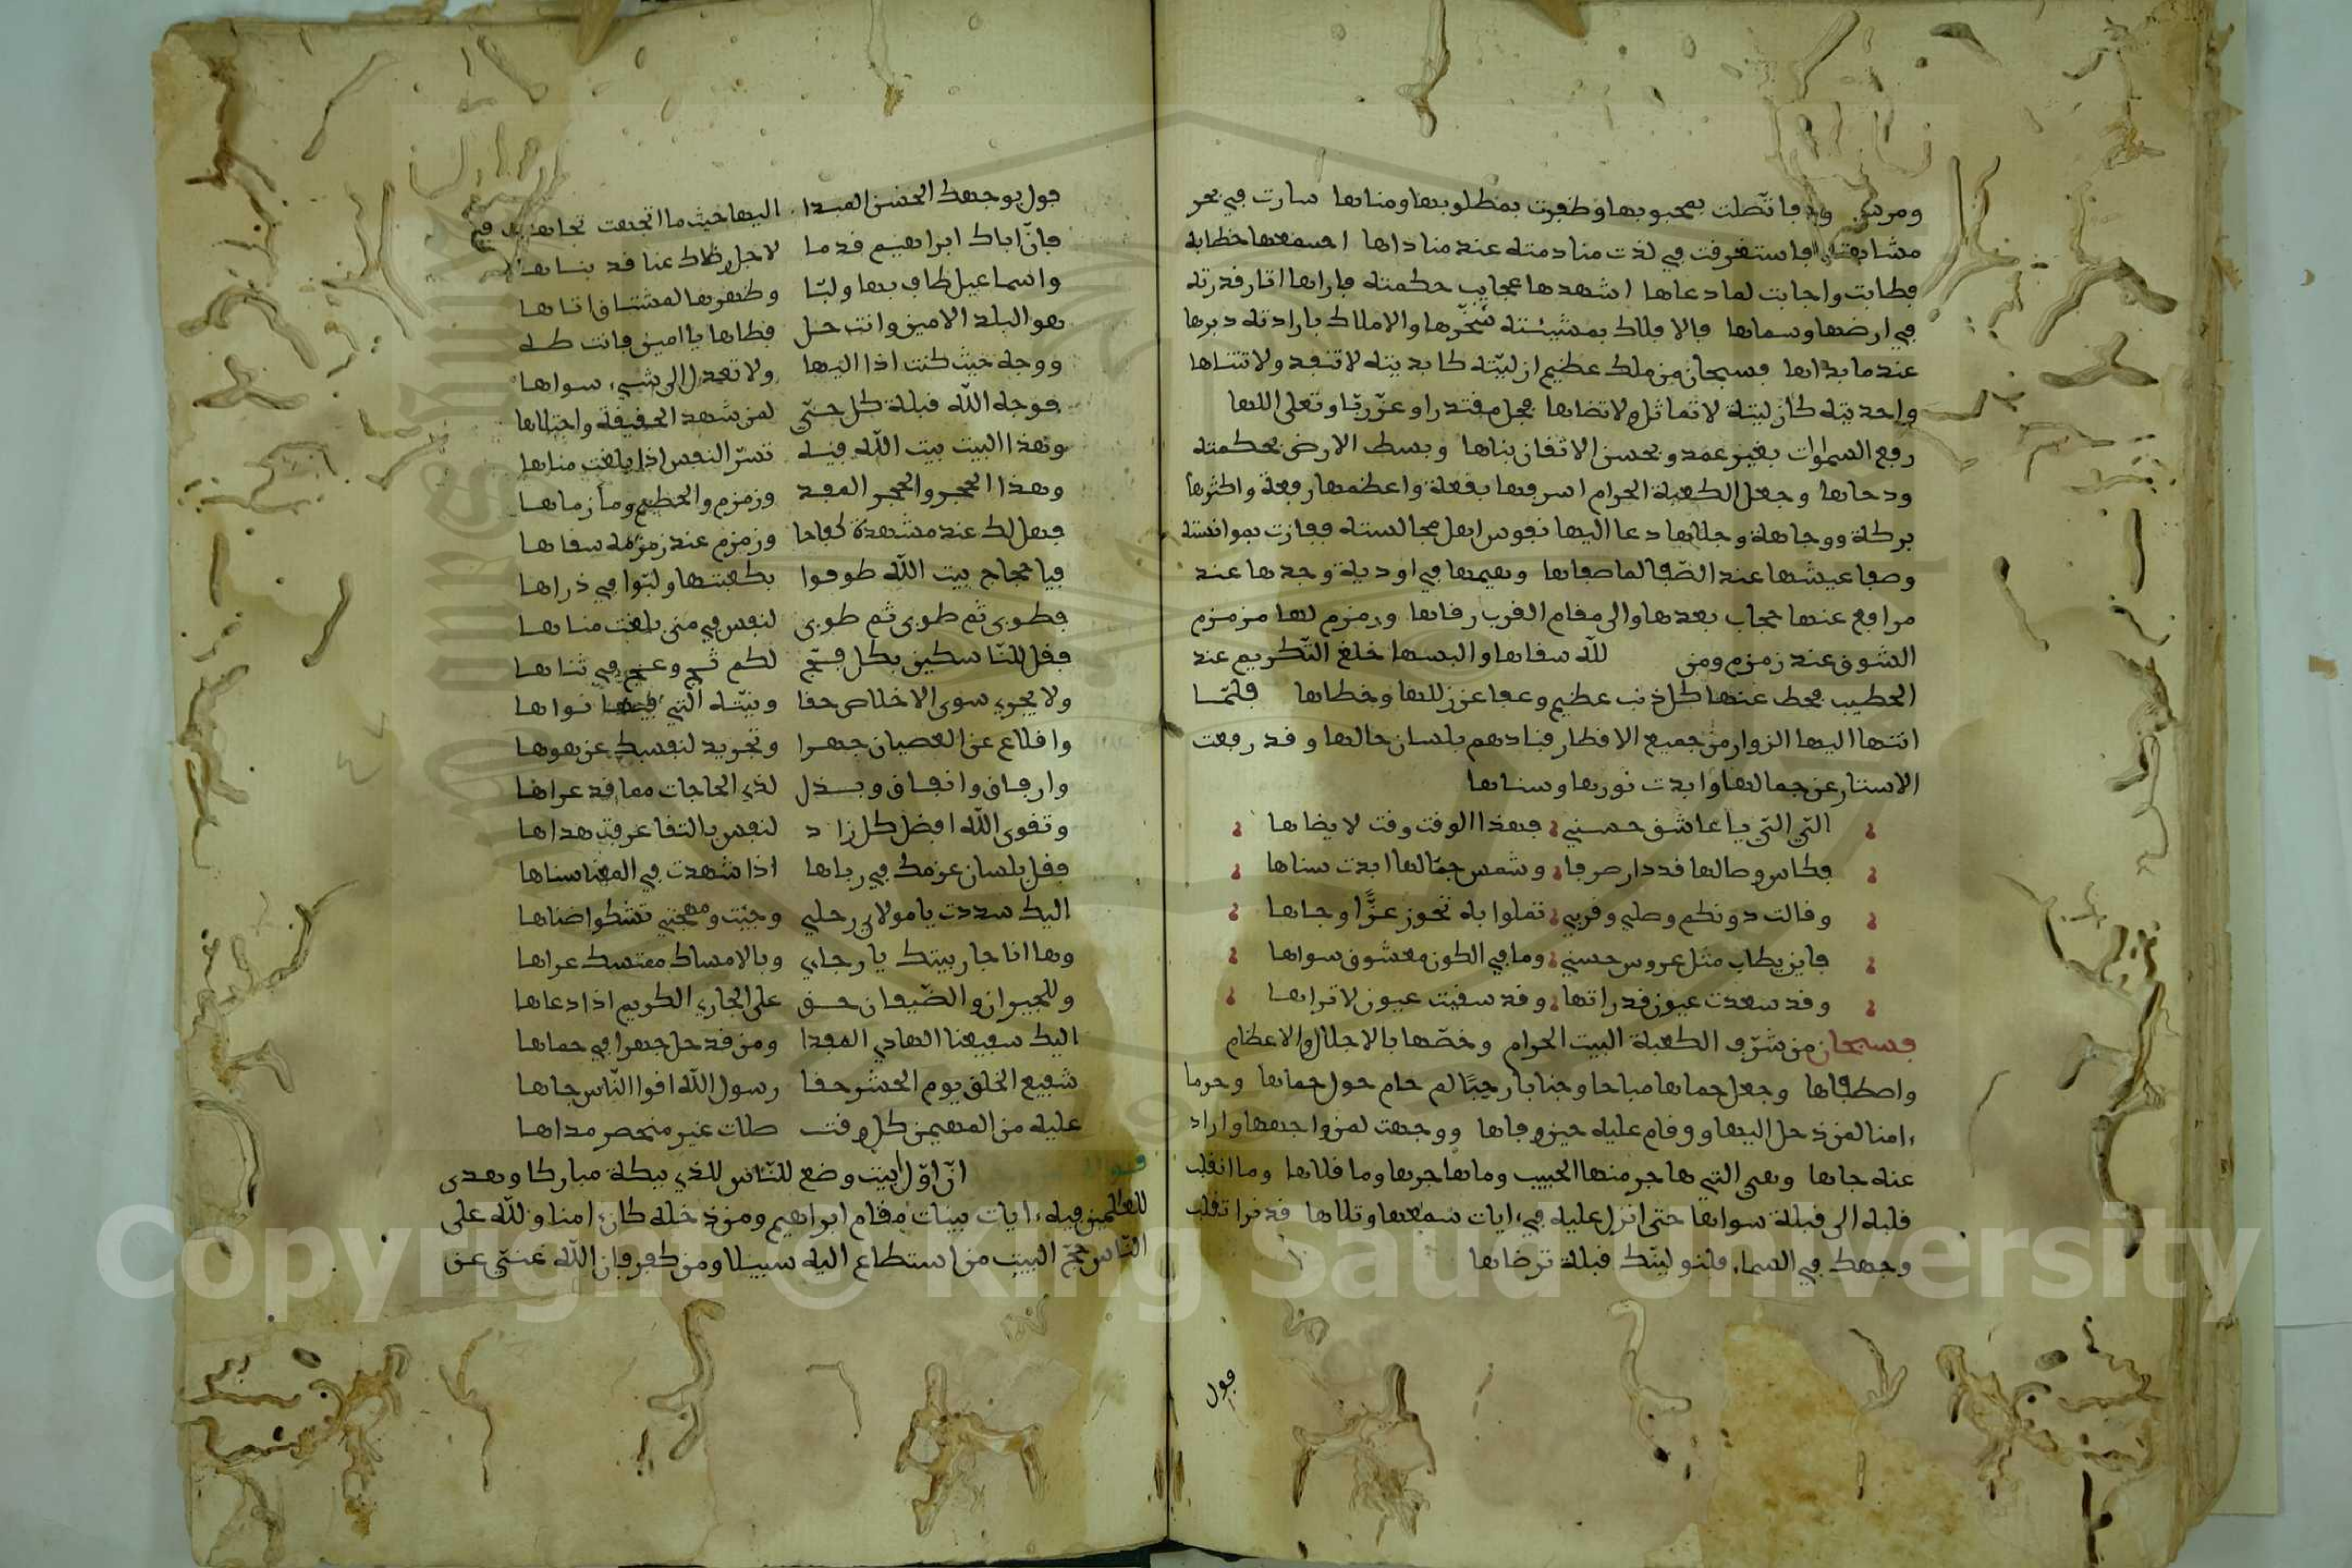 فاتصلت بمحبوبها وظفرت بمطلوبها ومناها سارت في بحر
فاستغرقت في لذت منادمته عند مناداها اسمعها خطابه
فطابت واجابت لما دعاها اشهدها عجايب حكمته فاراها اثار قدرته
في ارضها وسماها فالافلاك بمشيئته سخّرها والاملاك بارادته دبرها
عندما بداها فسبحان من ملك عظيم ازليّته كابديته لا تنفد ولا تتناها
واحديته كازليتة لا تماثل ولا تضاها فجل مقتدرا وعزّ ربّا وتعلى الٰها
رفع السموات بغير عمد وبحسن الاتقان بناها وبسط الارض بحكمته
ودحاها وجعل الكعبة الحرام اشرفها بقعة واعظمها رفعة واكثرها
بركة ووجاهة وجلالها دعا اليها نفوس اهل مجالسته ففازت بموانسته
وصفا عيشها عند الصّفا لما صفاها وهيمها في اودية وجدها عند
مرافع عنها حجاب بعدها والى مقام القرب رقاها وزمزم لها مزمزم
الشوق عند زمزم ومن لله سقاها والبسها خلع التّكريم عند
الحطيب فحط عنها كل ذنب عظيم وعفا عن زللها وخطاها فلمّا
انتها اليها الزوار من جميع الاقطار فنادهم بلسان حالها وقد رفعت
الاستار عن جمالها وابدت نورها وسناها
التي التي يا عاشق حسني فهذا الوقت وقت لا يضاها
فكاس وصالها قد دار صرفا وشمس جمّالها ابدت سناها
وقالت دونكم وصلي وقربي تملوا به تحوز عزًّا وجاها
فاين يطاب مثل عروس حسني وما في الكون معشوق سواها
وقد سعدت عيون قد راتها وقد سقيت عيون لا تراها
فسبحان من شرّف الكعبة البيت الحرام وخصّها بالاجلال والاعظام
واصطفاها وجعل حماها مباحا وجنابا رحبًا لم حام حول حماها وحرما
ءامنا لمن دخل اليها ووقام عليه حين وفاها ووجهت لمن واجهها واراد
عنه جاها وهي التي هاجر منها الحبيب وما هاجرها وما قلاها وما انقلب
قلبه الى قبلة سواها حتى انزل عليه في ءايات سمعها وتلاها قد نرا تقلب
وجهك في السماء فلنولينّك قبلة ترضاها
فول
فول بوجهك الحسن المبدا اليها حيث ما اتجهت تجاها
فانّ اباك ابراهيم قدما لاجل ذاك عنا قد بناها
واسماعيل طاف بها ولبّا وطهرها لمشتاق اتاها
هو البلد الامين وانت حل فطاها يا امين فانت طه
ووجه حيث كنت اذا اليها ولا تعدل الى شيء سواها
فوجه الله قبلة كل حيّ لمن شهد الحقيقة واجتلاها
وهذا البيت بيت الله فيه تسرّ النفس اذا بلغت مناها
وهذا الحجر والحجر المفد وزمزم والحطيم وما زماها
فهل لك عند مشهدة كفاحا وزمزم عند زمزمه سقاها
فيا حجاج بيت الله طوفوا بكعبتها ولبّوا في ذراها
فطوبى ثم طوبى ثم طوبى لنفس في منى بلغت مناها
فقل للنّاسكين بكل فجّ لكم ثج وعج في ثناها
ولا يجري سوى الاخلاص حقا ونيّته التي فيها نواها
واقلاع عن العصيان جهرا وتجريد لنفسك عن هوها
وارفاق وانفاق وبذل لذي الحاجات مما قد عراها
وتقوى الله افضل كل زاد لنفس بالتقا عرفت هداها
فقل بلسان عزمك في رباها اذا شهدت في المغنا سناها
اليك شددت يا مولاي رحلي وجيت ومهجتي تشكوا ضناها
وها انا جار بيتك يا رجاي وبالامساك ممتسك عراها
وللجيران والضّيفان حق على الجاري الكريم اذا دعاها
اليك شفيعنا الهادي المفدا ومن قد حل جهرا في حماها
شفيع الخلق يوم الحشر حقا رسول الله اقوا النّاس جاها
عليه من المهيمن كل وقت صلات غير منحصر مداها
انّ اوّل بيت وضع للنّاس للذي ببكة مباركا وهدى
للعٰلمين فيه ءايات بينات مقام ابراهيم ومن دخله كان ءامنا ولله على
النّاس حجّ البيت من استطاع اليه سبيلا ومن كفر فان الله غنيّ عن
Copyright © King Saud University